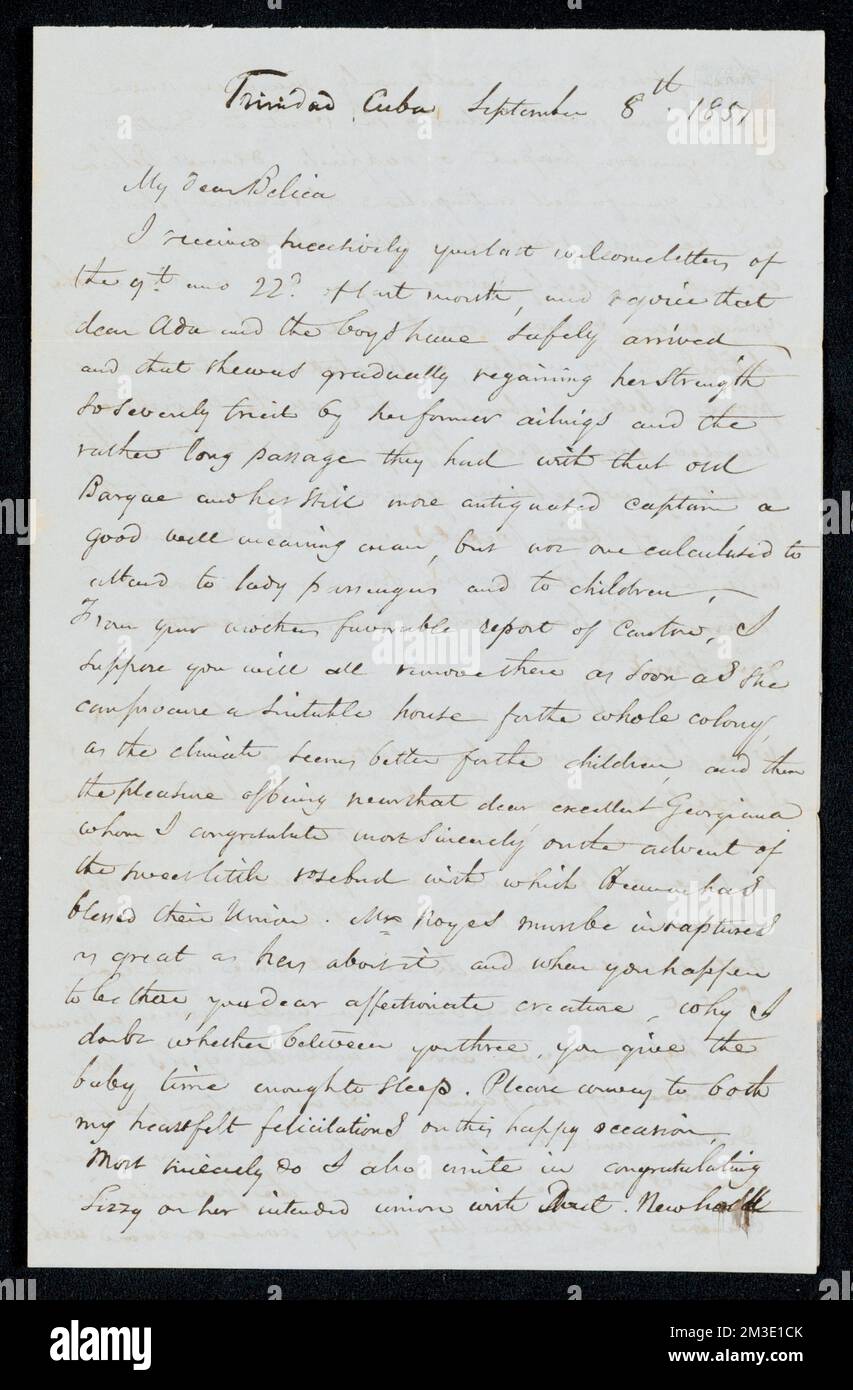 Trinidad, Cuba September 8th. 1857
My dear Belica
I received successively your last welcome letters of
the 9th. and 22d. of last month, and rejoice that
dear Ada and the boys have safely arrived
and that she was gradually regaining her strength
so severely tried by her former ailings and the
rather long passage they had with that old
Barque and her still more antiquated captain, a
good well meaning man, but not one calculated to
attend to lady passengers and to children. —
From your mothers favorable report of Canton, I
suppose you will all remove there as soon as she
can procure a suitable house for the whole colony,
as the climate seems better for the children, and then
the pleasure of being near that dear, excellent Georgiana
whom I congratulate most sincerely on the advent of
the sweet little rosebud with which Heaven has
blessed their Union. Mrs Noyes must be in raptures
as great as hers about it and when you happen
to be there, you dear affectionate creature, why I
doubt whether between you three, you give the
baby time enough to sleep. Please convey to both
my heartfelt felicitations on this happy occasion.
Most sincerely do I also unite in congratulating
Lizzy on her intended union with Newhall
alamy
Image ID: 2M3E1CK
www.alamy.com